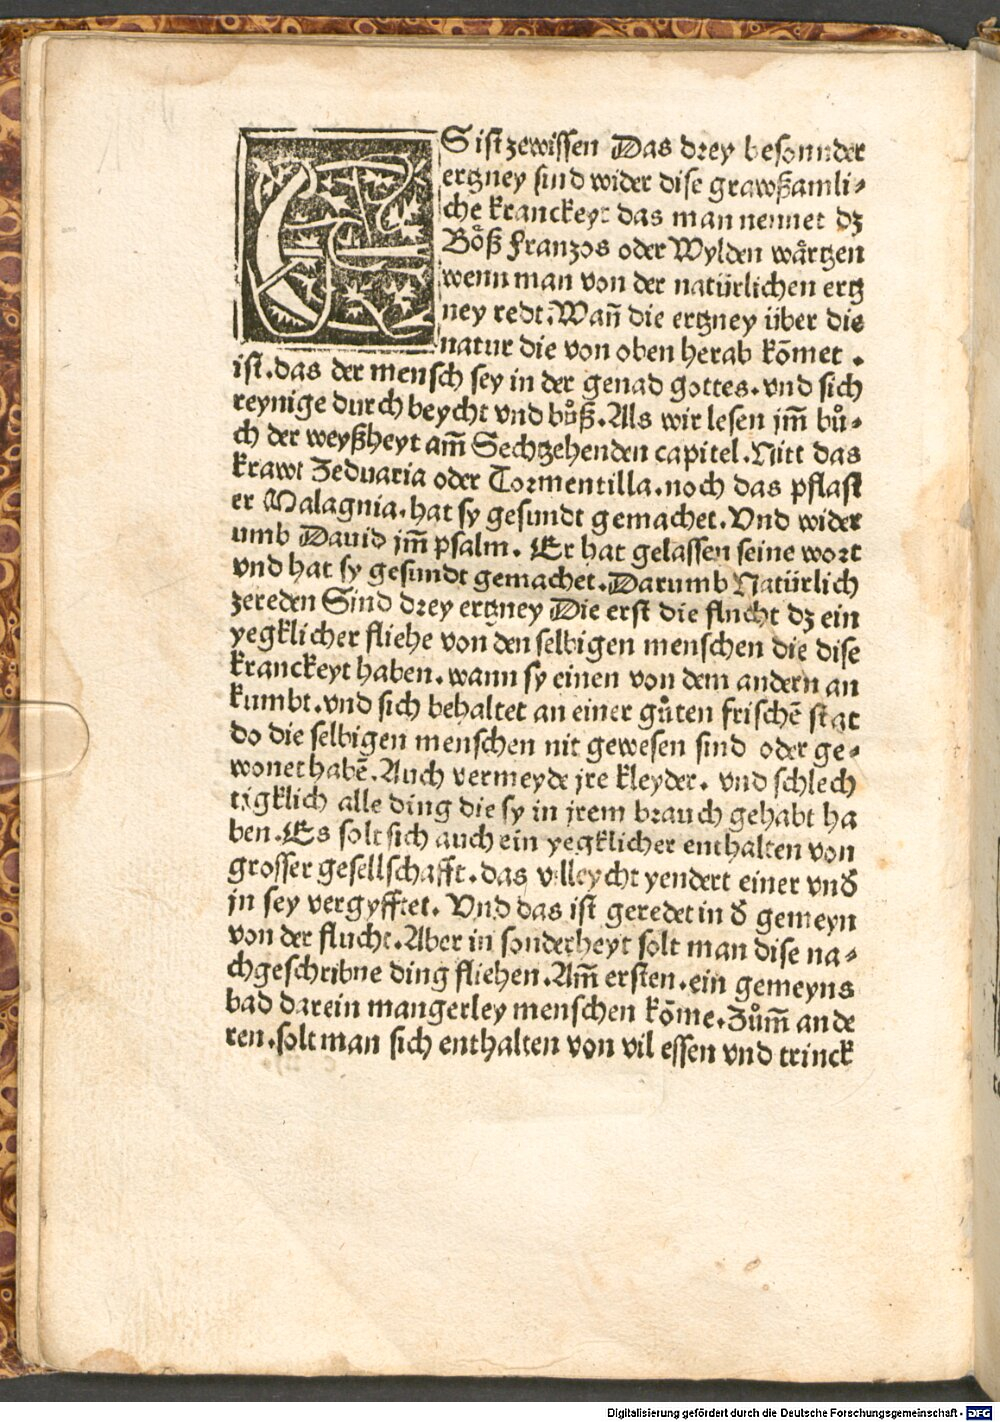 ES ist zewissen Das drey besonnder
ertzney sind wider dise grawßamli⸗
che kranckeyt das man nennet dz
Böß Franzos oder Wylden wärtzen
wenn man von der natürlichen ertz
ney redt. Wañ die ertzney über die
natur die von oben herab kōmet .
ist. das der mensch sey in der genad gottes. vnd sich
reynige durch beycht vnd bůß. Als wir lesen jm̄ bů⸗
ch der weyßheyt am̄ Sechtzehenden capitel. Nitt das
krawt Zeduaria oder Tormentilla. noch das pflast
er Malagnia. hat sy gesundt gemachet. Vnd wider
umb Dauid jm̄ psalm. Er hat gelassen seine wort
vnd hat sy gesundt gemachet. Darumb Natürlich
zereden Sind drey ertzney Die erst die flucht dz ein
yegklicher fliehe von den selbigen menschen die dise
kranckeyt haben. wann sy einen von dem andern an
kumbt. vnd sich behaltet an einer gůten frischē stat
do die selbigen menschen nit gewesen sind oder ge⸗
wonet habē. Auch vermeyde jre kleyder. vnd schlech
tigklich alle ding die sy in jrem brauch gehabt ha
ben. Es solt sich auch ein yegklicher enthalten von
grosser gesellschafft. das villeycht yendert einer vnđ
jn sey vergyfftet. Vnd das ist geredet in đ gemeyn
von der flucht. Aber in sonderheyt solt man dise na⸗
chgeschribne ding fliehen. Am̄ ersten. ein gemeyns
bad darein mangerley menschen kōme. Zům̄ ande
ren. solt man sich enthalten von vil essen vnd trinck
Digitalisierung gefördert durch die Deutsche Forschungsgemeinschaft - DFG